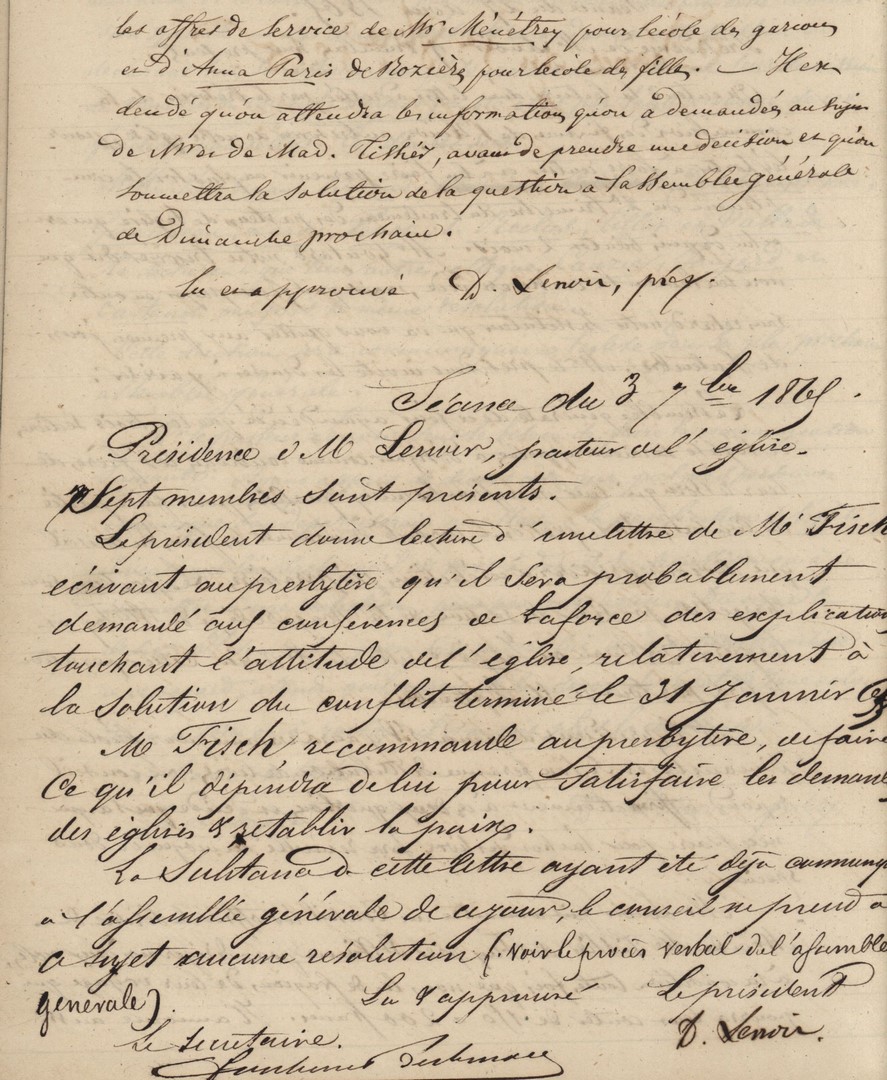 les offres de service de Mr Ménétrey pour l'école des garçons
et d'Anna Paris de Rozière pour l'école des filles. — Il est
décidé qu'on attendra les informations qu'on a demandées au sujet
de Mr et de Mad. Tisher, avant de prendre une décision et qu'on
soumettra la solution de la question à l'assemblée générale
de Dimanche prochain.
lu et approuvé D. Lenoir, prés.
Séance du 3 7bre 1865.
Présidence d M Lenoir, pasteur de l'église.
Sept membres sont présents.
Le président donne lecture d'une lettre de Mr Fisch
écrivant au presbytère qu'il sera probablement
demandé aux conférences de Laforce des explication
touchant l'attitude de l'église, relativement à
la solution du conflit terminé le 31 Janvier 65
M Fisch recommande au presbytère, de faire
ce qu'il dépendra de lui pour satisfaire les demand
des églises & rétablir la paix.
La substance de cette lettre ayant été déjà communiq
à l'assemblée générale de ce jour, le conseil ne prend à
ce sujet aucune résolution (voir le procès verbal de l'assemblé
générale).
Lu & approuvé Le président
Le secrétaire. D. Lenoir.